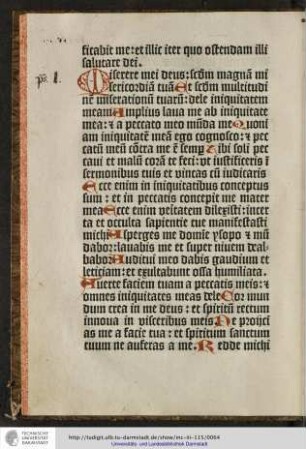 ficabit me: et illic iter quo ostendam illi
salutare dei.
ps̄. l.
Miserere mei deus: scd̄m magnā mi
sericordiā tuā Et scd̄m multitudi
nē miserationū tuarū: dele iniquitatem
meam Amplius laua me ab iniquitate
mea: ⁊ a peccato meo mūda me Quoni
am iniquitatē meā ego cognosco: ⁊ pec
catū meū cōtra me ē semp̄ Tibi soli pec
caui et malū corā te feci: vt iustificeris ī
sermonibus tuis et vincas cū iudicaris
Ecce enim in iniquitatibus conceptus
sum: et in peccatis concepit me mater
mea Ecce enim veritatem dilexisti: incer
ta et occulta sapientie tue manifestasti
michi Asperges me domīe ysopo ⁊ mū
dabor: lauabis me et super niuem deal
babor Auditui meo dabis gaudium et
leticiam: et exultabunt ossa humiliata.
Auerte faciem tuam a peccatis meis: ⁊
omnes iniquitates meas dele Cor mun
dum crea in me deus: et spiritū rectum
innoua in visceribus meis Ne proijci
as me a facie tua: et spiritum sanctum
tuum ne auferas a me. Redde michi
TECHNISCHE
UNIVERSITÄT
DARMSTADT
http://tudigit.ulb.tu-darmstadt.de/show/inc-iii-115/0064
Universitäts- und Landesbibliothek Darmstadt